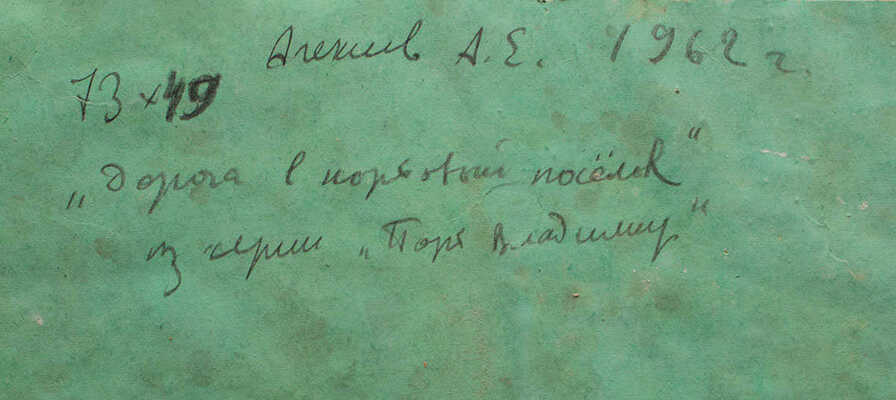 Алексеев А. Е. 1962 г.
73 x 49
„Дорога в портовый посёлок"
из серии „Порт Владимир"